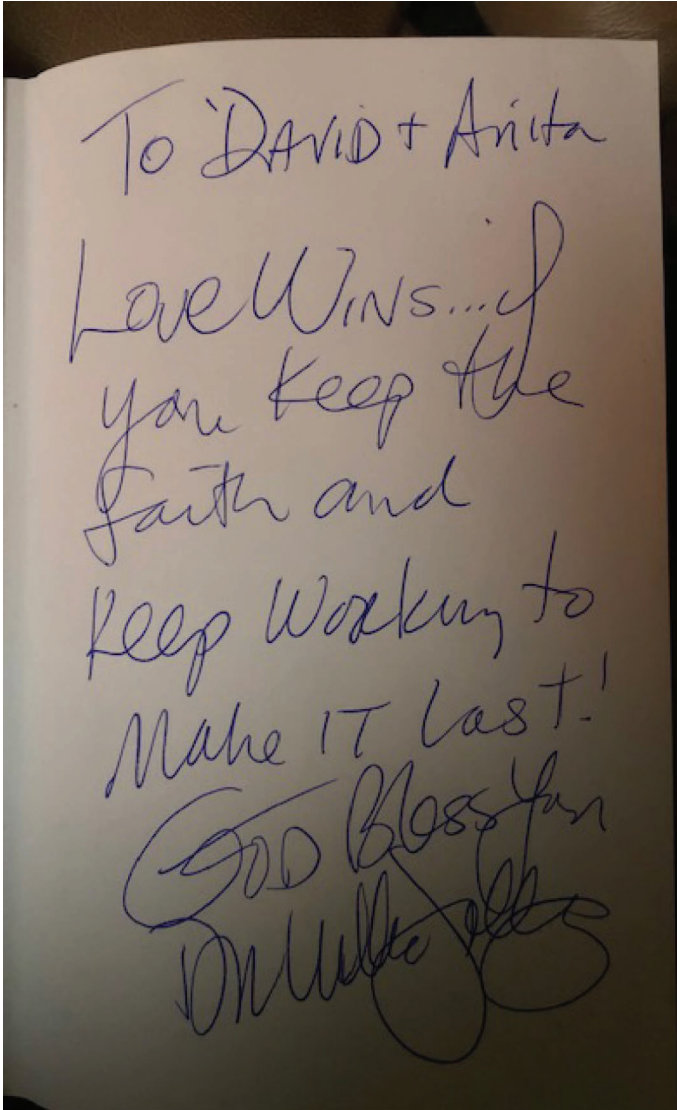 To DAVID + Anita
Love WINS...if
you keep the
faith and
Keep Working to
Make IT Last!
GOD Bless You